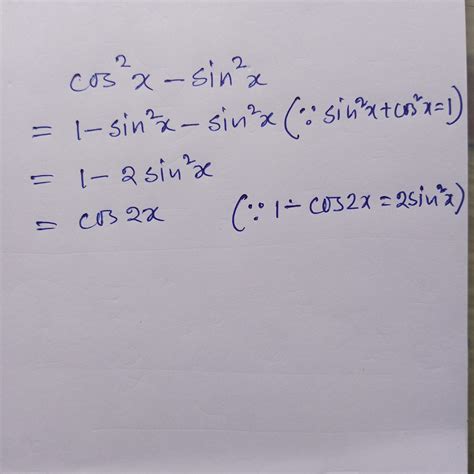 cos²x - sin²x
= 1 - sin²x - sin²x (∵ sin²x + cos²x = 1)
= 1 - 2 sin²x
= cos 2x (∵ 1 - cos2x = 2sin²x)